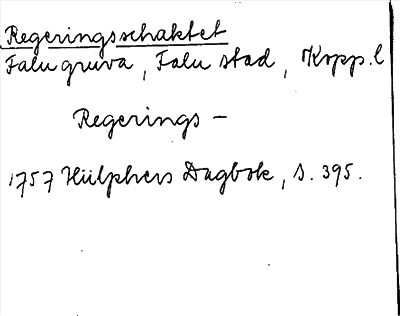 Regeringsschaktet
Falu gruva, Falu stad, Kopp.l
Regerings –
1757 Hülphers Dagbok, s. 395.